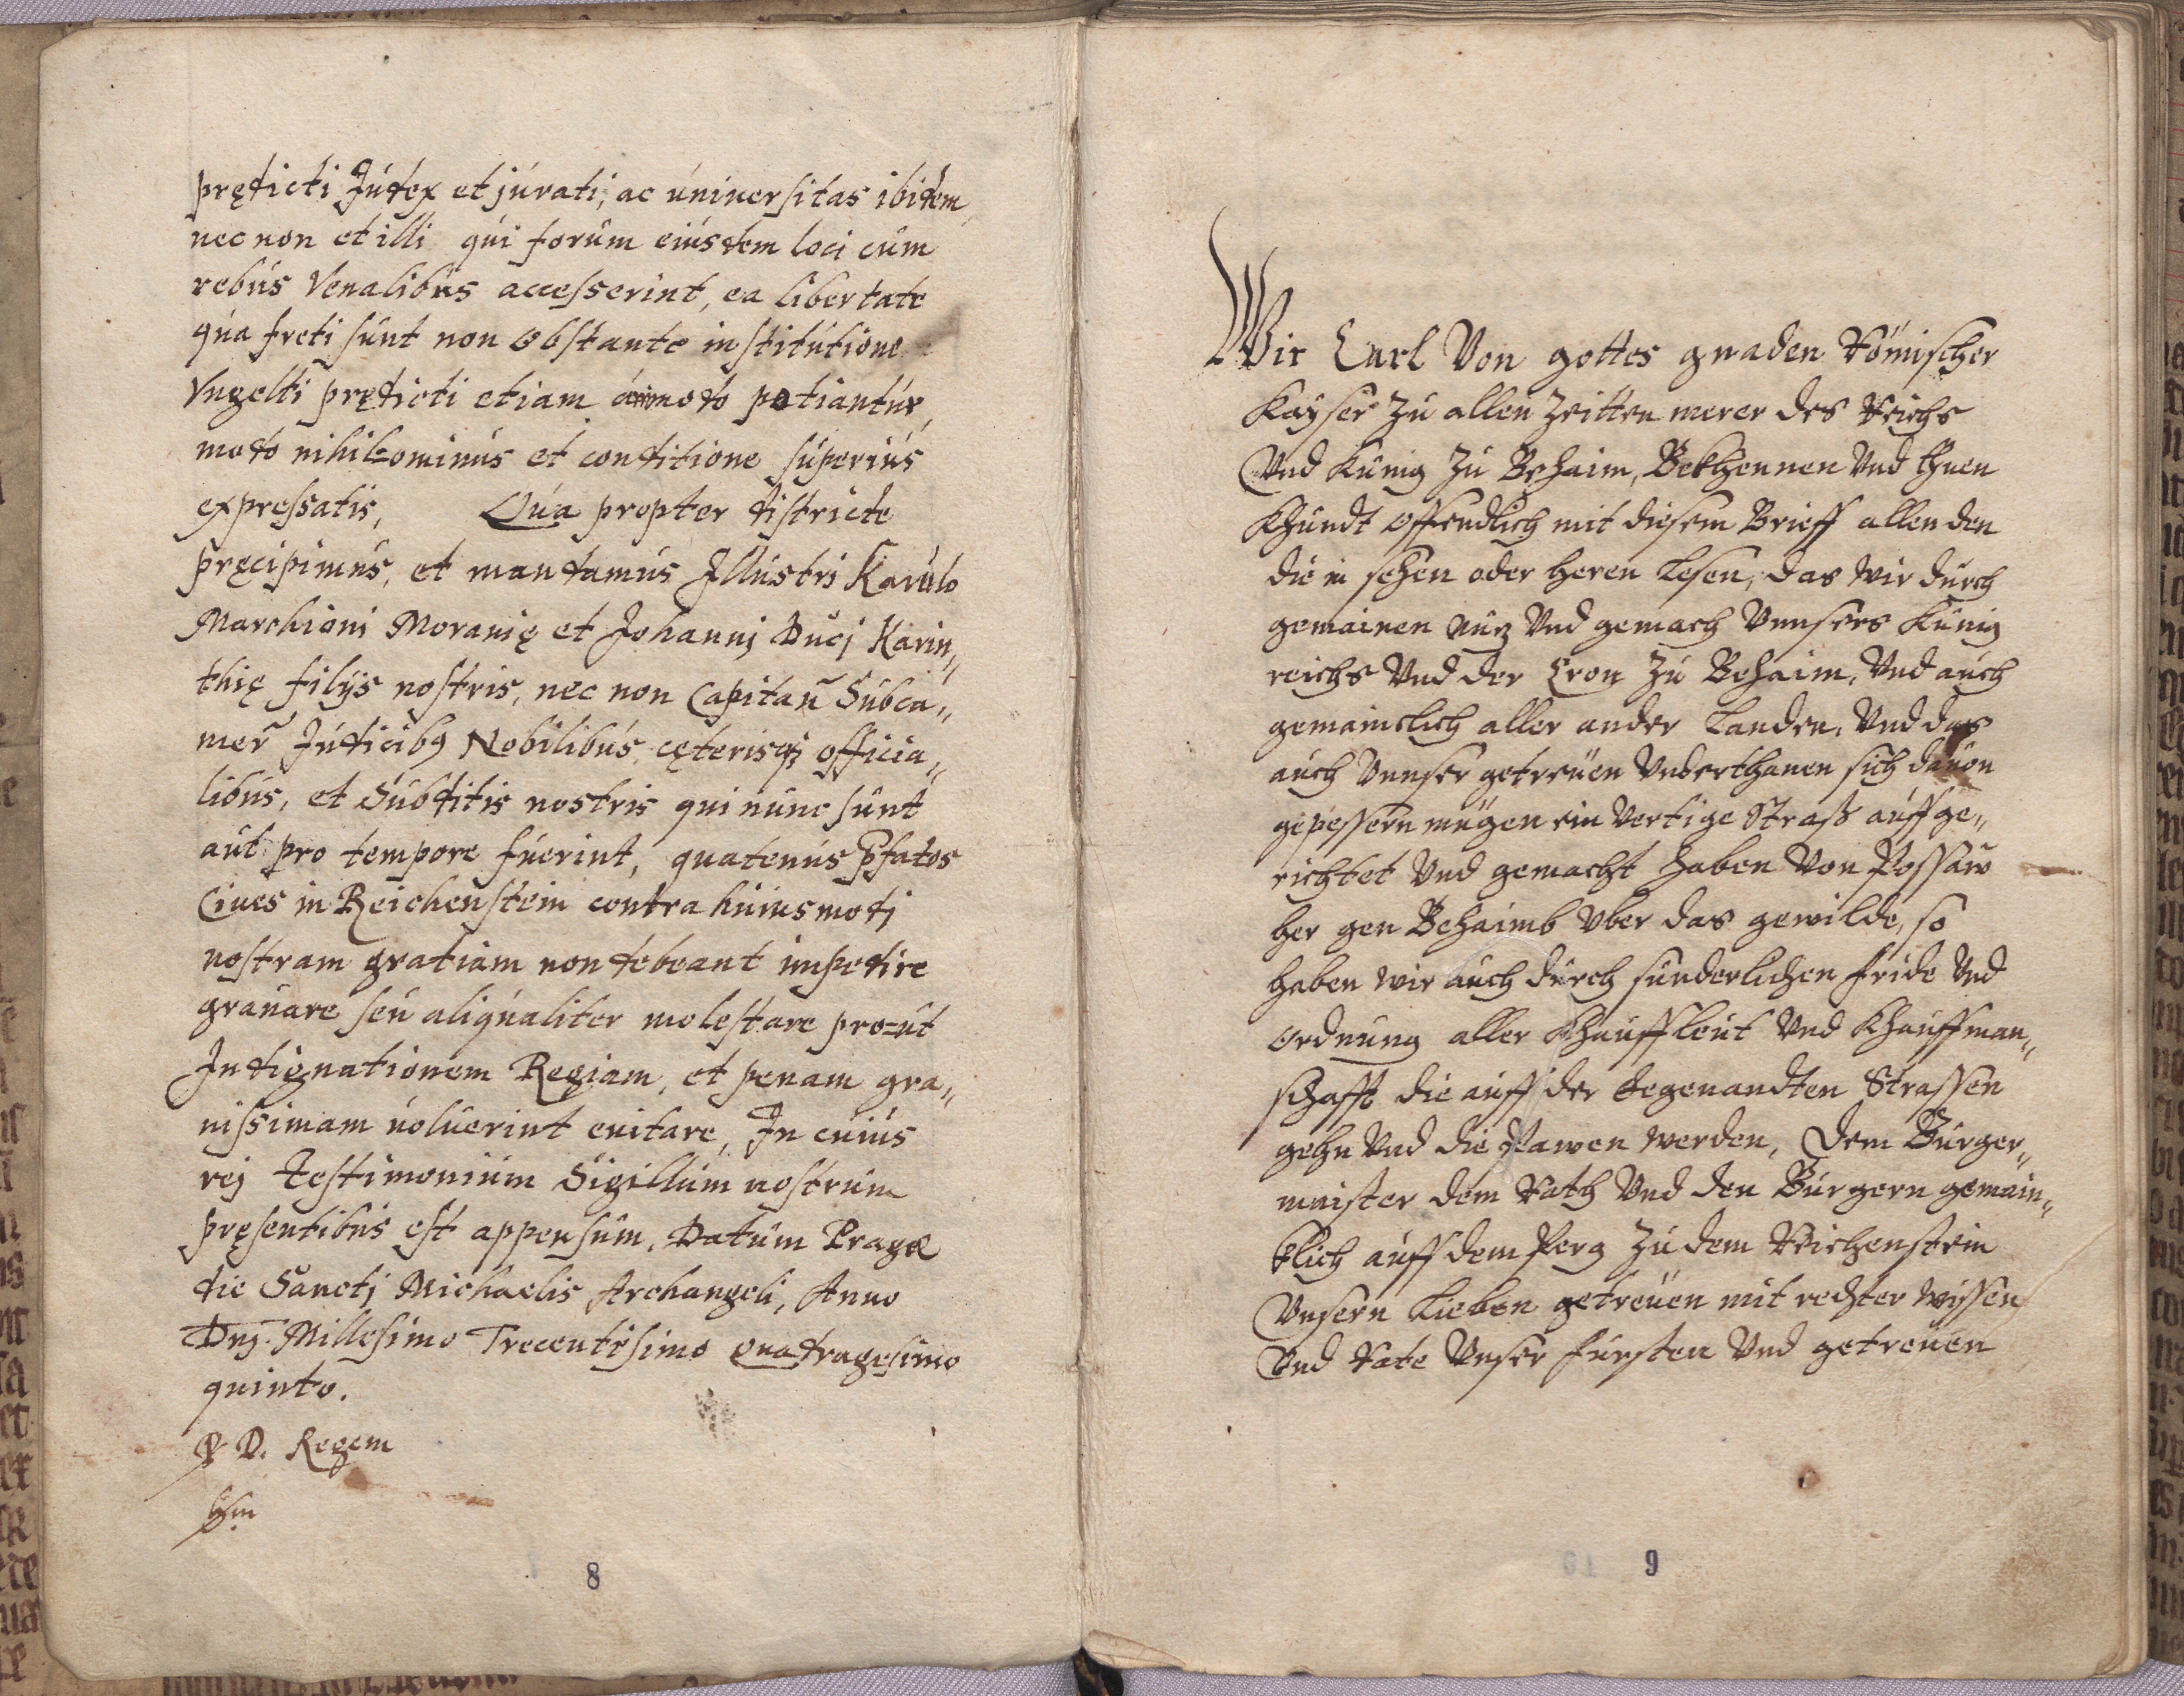 prędicti Júdex et júrati, ac úniuersitas ibidem
nec non et illi qúi forúm eiúsdem loci cúm
rebús Venalibús accesserint, ea libertate
qúa freti súnt non obstante institútione
Vngelti prędicti etiam ámodo potiantúr,
modo nihilominús et conditione súperiús
expressatis, Qúa propter districte
pręcipimús, et mandamús Jllústri Karúlo
Marchioni Morauię et Johannj Dúcj Karin„
thię filijs nostris, nec non Capitan̄ Súbca„
mer̄ Júdicibꝰ Nobilibús, cęterisqꝫ officia„
libús, et Súbditis nostris qui núnc súnt
aút pro tempore fúerint, quatenús p̄fatos
Ciues in Reichenstein contra húiúsmodj
nostram gratiam non debeant impedire
graúare seú aliqúaliter molestare pro=út
Jndignationem Regiam, et penam gra„
uissimam úolúerint euitare, Jn cúiús
rej testimoniúm Sigillúm nostrúm
pręsentibús est appensúm, Datúm Pragæ
die Sanctj Michaelis Archangeli, Anno
Dn̄j. Millesimo Trecentesimo Quadragesimo
quinto.
ꝑ D. Regem
8
Wir Carl Von gottes gnaden Römischer
Kayser zú allen Zeitten merer des Reichs
Vnd Künig zú Behaim, Bekhennen Vnd thuen
Khúndt offendlich mit diesem Brieff allen den
die in sehen oder heren lesen, das wir dúrch
gemainen núz Vnd gemach Vnnsers Künig
reichs Vnd der Cron zú Behaim, Vnd aúch
gemaincklich aller ander Landen, Vnd das
aúch Vnnser getreúen Vnderthanen sich dauon
gepessern mügen ein Vertige Straß aúffge„
richtet Vnd gemacht haben Von Passaw
her gen Behaimb Vber das gewilde, so
haben wir aúch dúrch súnderlichen fride Vnd
ordnúng aller Khaúffleút Vnd Khaúffman„
schafft die aúff der Egenandten Strassen
gehn Vnd die Pawen werden, dem Búrger„
maister dem Rath Vnd den Búrgern gemain„
klich aúff dem Perg zú dem Reichenstein
Vnsern Lieben getreúen mit rechter wissen
Vnd Rate Vnser fúrsten Vnd getreúen
9